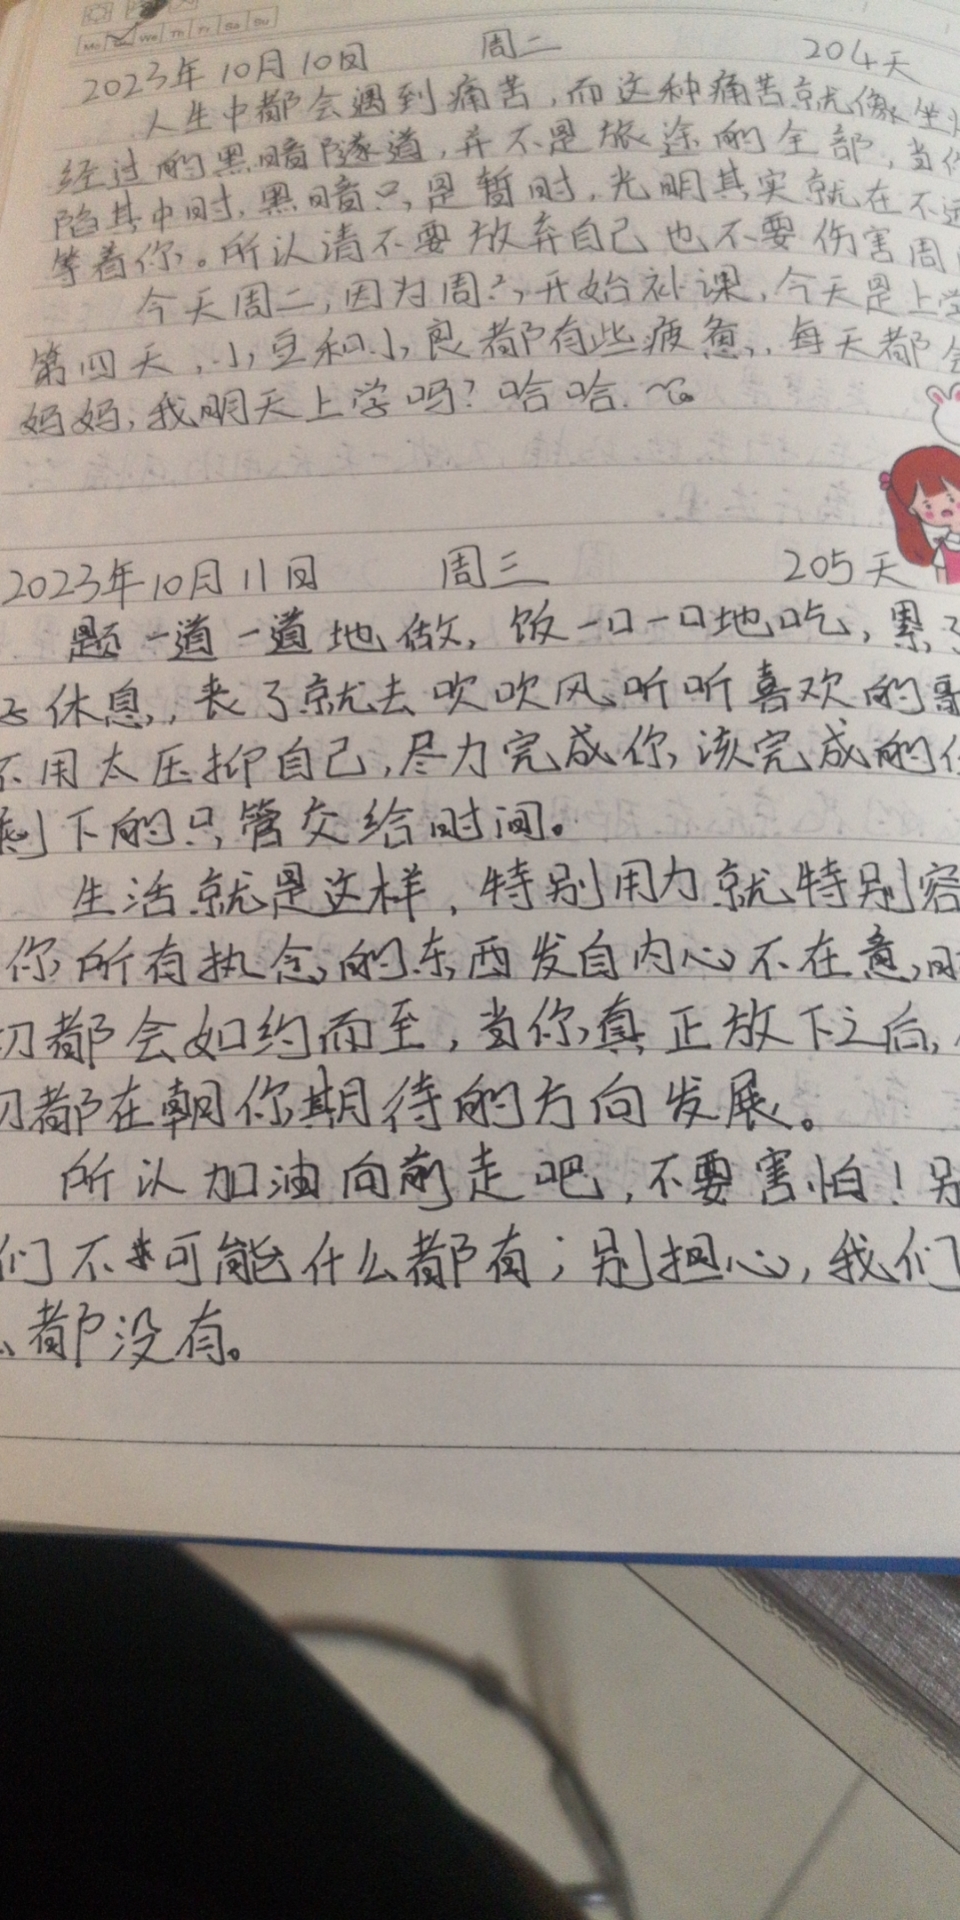 Mo We Th Fr Sa Su
2023年10月10日 周二 204天
人生中都会遇到痛苦，而这种痛苦就像坐
经过的黑暗隧道，并不是旅途的全部，当你
陷其中时，黑暗只是暂时，光明其实就在不远
等着你。所以请不要放弃自己也不要伤害周
今天周二，因为周六开始补课，今天是上学
第四天，小豆和小良都有些疲惫，每天都会
妈妈，我明天上学吗？哈哈.
2023年10月11日 周三 205天
题一道一道地做，饭一口一口地吃，累了
去休息，丧了就去吹吹风听听喜欢的歌
不用太压抑自己，尽力完成你该完成的
剩下的只管交给时间。
生活就是这样，特别用力就特别容
你所有执念的东西发自内心不在意，时
切都会如约而至，当你真正放下之后，
切都在朝你期待的方向发展。
所以加油向前走吧，不要害怕！别
们不可能什么都有；别担心，我们
么都没有。